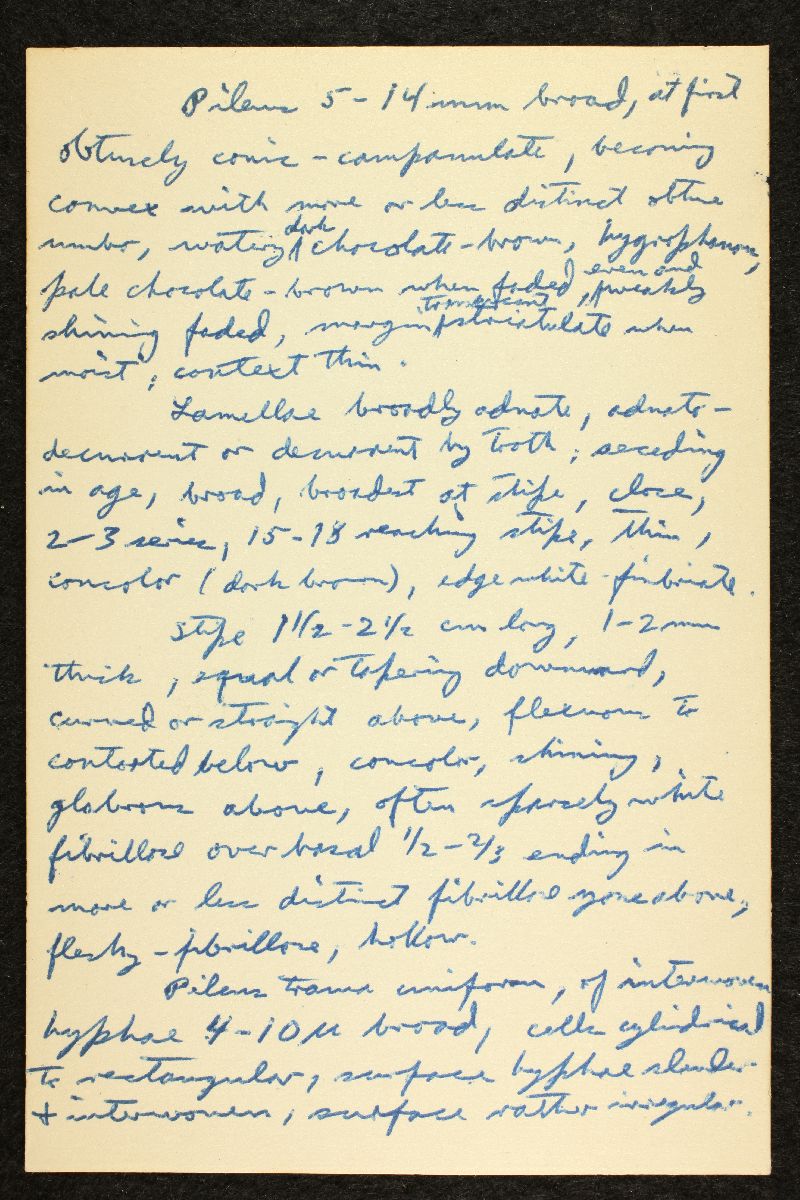 Pileus 5-14 mm broad, at first
obtusely conic-campanulate, becoming
convex with more or less distinct obtuse
umbo, watery dark chocolate-brown, hygrophanous,
pale chocolate-brown when faded, even and weakly
shining faded, margin translucent striatulate when
moist; context thin.
Lamellae broadly adnate, adnato-
decurrent or decurrent by tooth; seceding
in age, broad, broadest at stipe, close,
2-3 series, 15-18 reaching stipe, thin,
concolor (dark brown), edge white-fimbriate.
Stipe 1 1/2-2 1/2 cm long, 1-2 mm
thick, equal or tapering downward,
curved or straight above, flexuous to
contorted below, concolor, shining,
glabrous above, often sparsely white
fibrillose over basal 1/2-2/3 ending in
more or less distinct fibrillose zone above,
fleshy-fibrillose, hollow.
Pileus trama uniform, of interwoven
hyphae 4-10 µ broad, cells cylindrical
to rectangular, surface hyphae slender
+ interwoven; surface rather irregular.